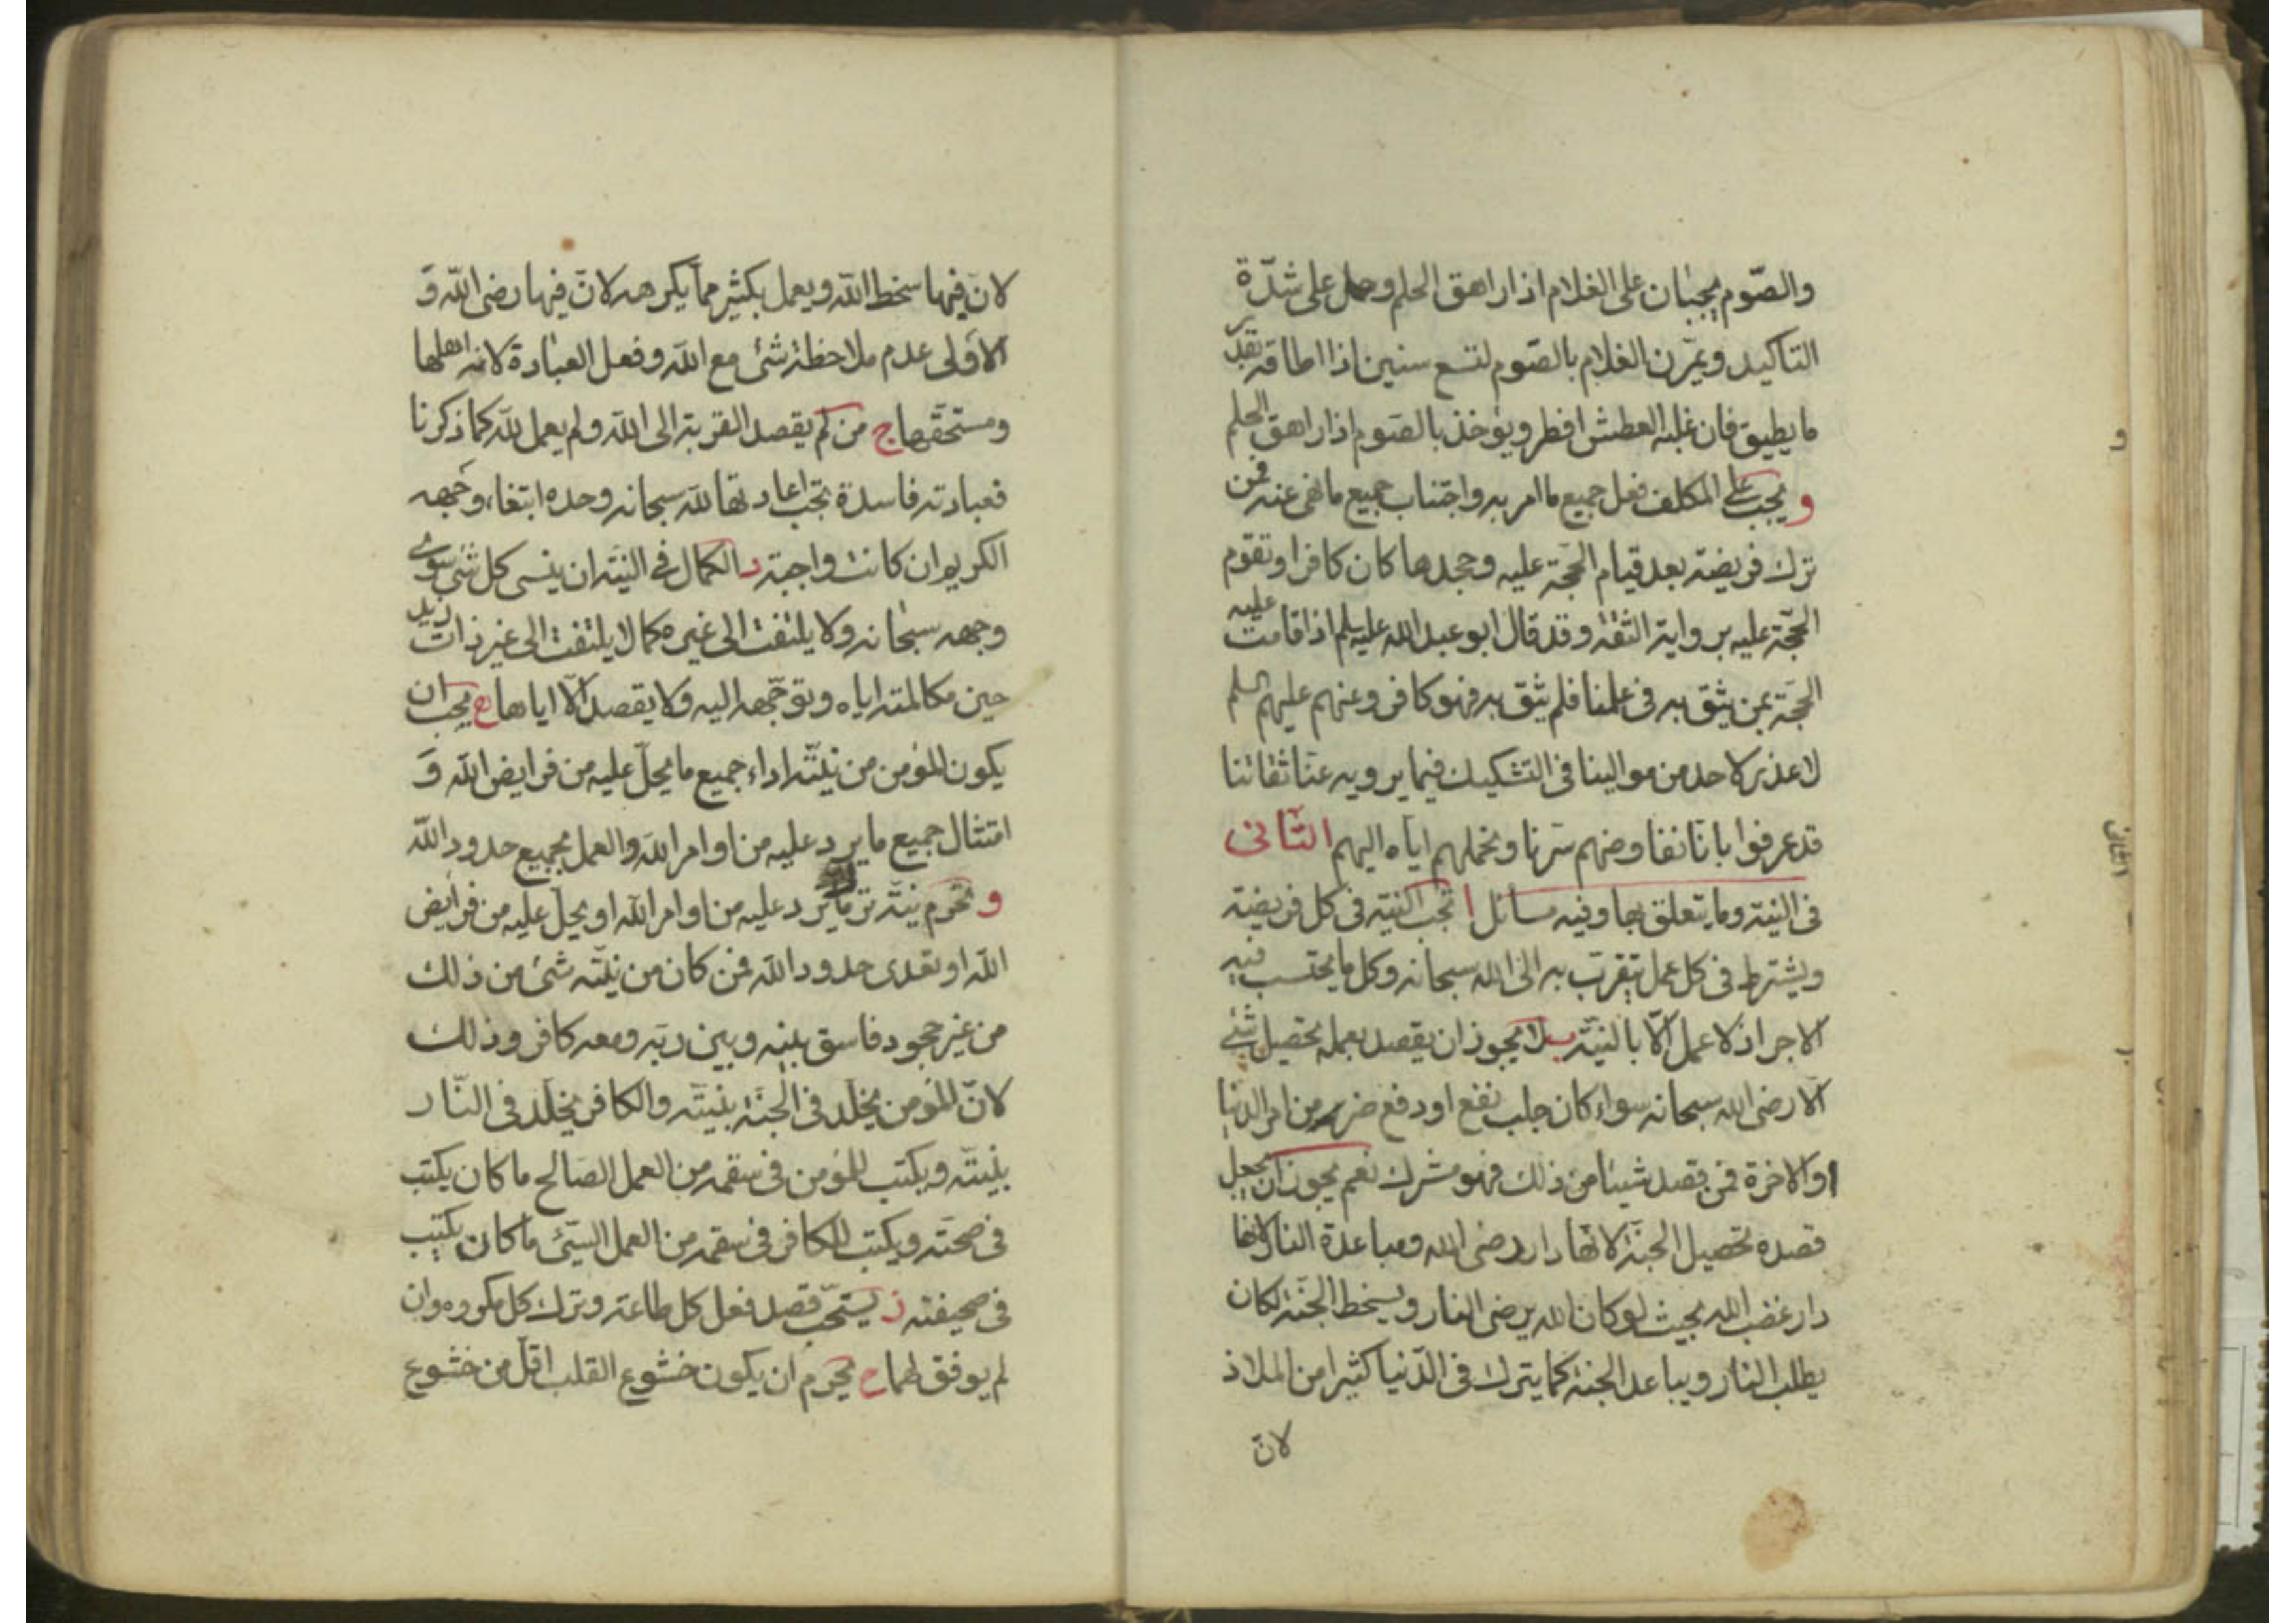 والصّوم يجبان على الغلام اذا راهق الحلم وحمل على شدّة
التاكيد ويمرّن الغلام بالصّوم لتسع سنين اذا اطاقه بقدر
ما يطيق فان غلبه العطش افطر ويؤخذ بالصّوم اذا راهق الحلم
و يجب على المكلف فعل جميع ما امر به واجتناب جميع ما نهى عنه فمن
ترك فريضة بعد قيام الحجّة عليه وجحدها كان كافرا وتقوم
الحجّة عليه برواية الثقة وقد قال ابو عبد الله عليه سلم اذا قامت عليه
الحجّة بمن يثق به في علمنا فلم يثق به فهو كافر وعنهم عليهم السلم
لا عذر لاحد من موالينا في التشكيك فيما يرويه عنّا ثقاتنا
قد عرفوا بانّا نفاوضهم سرّنا ونحملهم ايّاه اليهم الثّاني
في النية وما يتعلق بها وفيه مسائل ا تجب النيّة في كل فريضة
ويشترط في كل عمل يتقرّب به الى الله سبحانه وكل ما يحتسب فيه
الاجر اذ لا عمل الّا بالنيّة ب لا يجوز ان يقصد بعمله تحصيل شئ
الّا رضى الله سبحانه سواء كان جلب نفع او دفع ضرر من امر الدنيا
او الاخرة فمن قصد شيئا من ذلك فهو مشرك نعم يجوز ان يجعل
قصده تحصيل الجنّة لانّها دار رضى الله ومباعدة النار لانها
دار غضب الله بحيث لو كان الله يرضى النار ويسخط الجنّة لكان
يطلب النار ويباعد الجنة كما يترك في الدّنيا كثيرا من الملاذ
لانّ
لانّ فيها سخط الله ويعمل بكثير ممّا يكرهه لانّ فيها رضى الله وَ
الاولى عدم ملاحظة شئ مع الله وفعل العبادة لانه اهلها
ومستحقّها ج من لم يقصد القربة الى الله ولم يعمل لله كما ذكرنا
فعبادته فاسدة تجب اعادتها لله سبحانه وحده ابتغاء وجهه
الكريم ان كانت واجبة د الكمال في النيّة ان ينسى كل شئ سوى
وجهه سبحانه ولا يلتفت الى غيره كما لا يلتفت الى غير ذات زيد
حين مكالمته اياه وتوجّهه اليه ولا يقصد الّا اياها ه يجب ان
يكون المؤمن من نيّته اداء جميع ما يحلّ عليه من فرايض الله وَ
امتثال جميع ما يرد عليه من اوامر الله والعمل بجميع حدود الله
و تحرم نيّة ترك ما يرد عليه من اوامر الله او يحلّ عليه من فرايض
الله او تعدى حدود الله فمن كان من نيّته شئ من ذلك
من غير جحود فاسق بينه وبين ربّه ومعه كافر وذلك
لانّ المؤمن يخلّد في الجنّة بنيّته والكافر يخلّد في النّار
بنيّته ويكتب للمؤمن في سقمه من العمل الصّالح ما كان يكتب
في صحّته ويكتب للكافر في سقمه من العمل السّئ ما كان يكتب
في صحيفته ز يستحبّ قصد فعل كل طاعة وترك كل مكروه وان
لم يوفق لهما ح يحرم ان يكون خشوع القلب اقلّ من خشوع